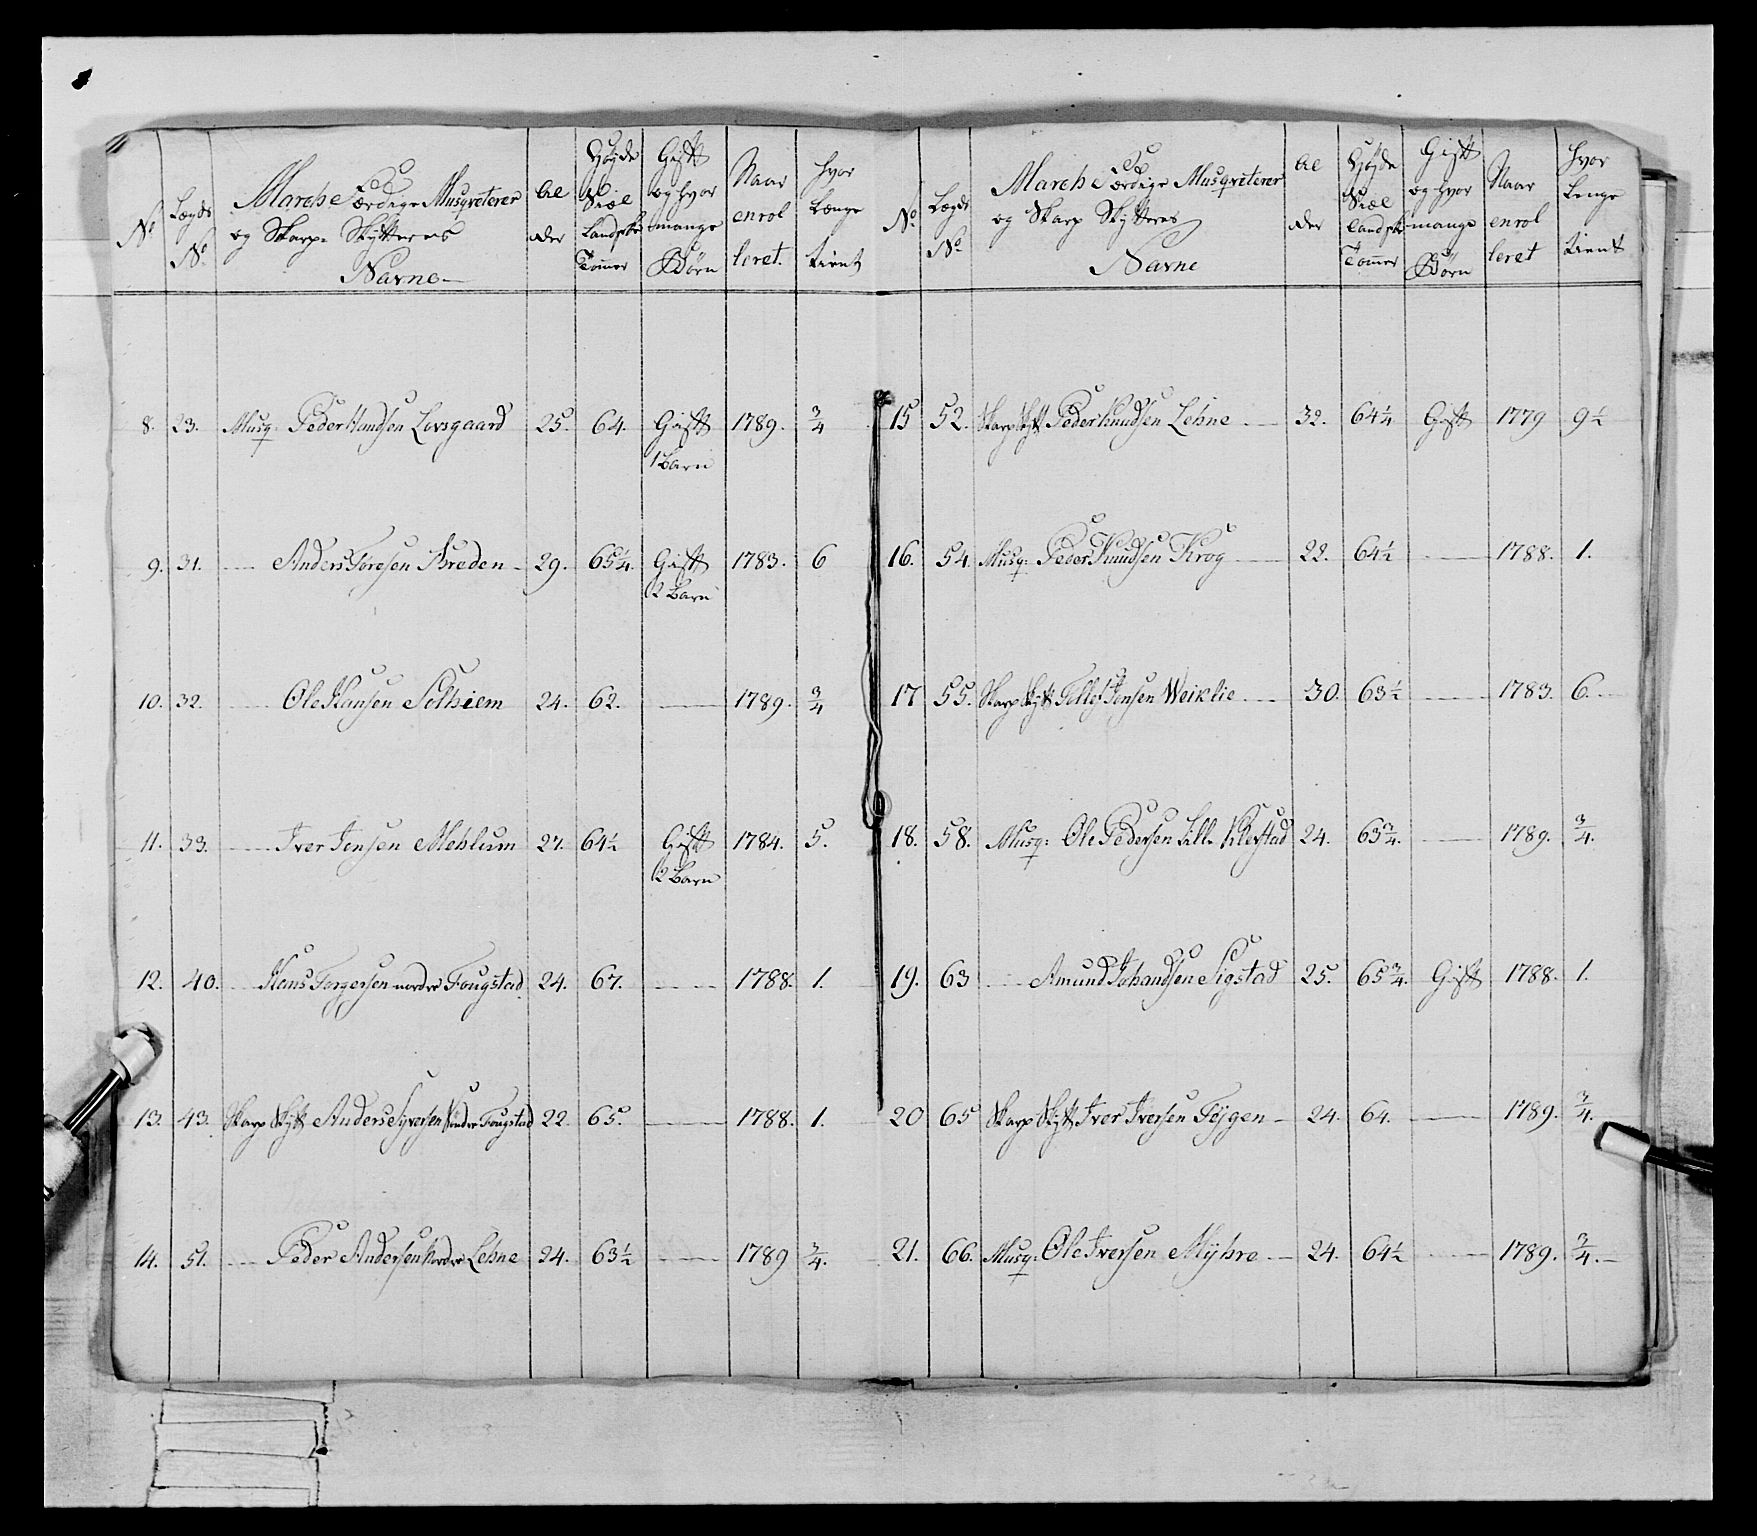 No
Lægds No
Marche Færdige Musqveterer og Skarp- Skytteres Navne
Al der
Høyde Siæl landske Tommer
Gift og hvor mange Børn
Naar enrol leret.
hvor Længe tient
8. 23. Musq: Peder Handsen Lovsgaard 25. 64. Gift 1789. 3/4
1 Barn
9. 31. Anders Toresen Breden 29. 65 1/4. Gift 1783. 6
2 Barn
10. 32. Ole Hansen Solhiem 24. 62. 1789. 3/4
11. 33. Iver Jensen Mehlum 27. 64 1/2 Gift 1784. 5.
2 Barn
12. 40. Hans Torgersen nordre Fougstad 24. 67. 1788. 1.
13. 43. Skarp Skytt Anders Syversen Søndre Fougstad 22. 65. 1788. 1.
14. 51. Peder Andersen Nordre Lehne 24. 63 1/2 1789 3/4.
No
Lægds No
Marche Færdige Musqveterer og Skarp Skytteres Navne
Al der
Høyde Siæl landske Tommer
Gift og hvor mange Børn
Naar enrol leret
hvor Lenge tient
15 52. Skarp Skytt Peder Knudsen Lehne 32. 64 1/4 Gift 1779 9 1/2
16. 54. Musq: Peder Knudsen Krog 22. 64 1/2 1788. 1.
17 55. Skarp Skytt Tollef Jensen Weiklie 30. 63 1/2 1783. 6.
18. 58. Musq: Ole Pedersen Lille Klevstad 24. 63 3/4. 1789. 3/4.
19. 63 Amund Johandsen Sigstad 25. 65 3/4. Gift 1788. 1.
20 65 Skarp Skytt Iver Iversen Töjgen 24. 64. 1789. 3/4.
21. 66. Musq: Ole Iversen Mÿhre 24. 64 1/2 1789. 3/4.